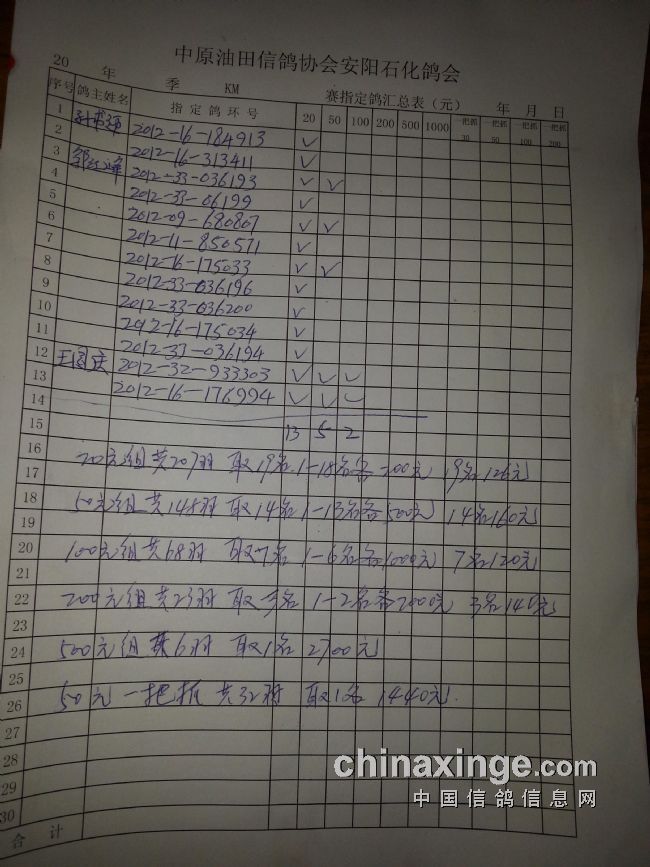 中原油田信鸽协会安阳石化鸽会
20 年 季 KM 赛指定鸽汇总表（元） 年 月 日
序号 鸽主姓名 指定鸽环号 20 50 100 200 500 1000 一把抓30 一把抓50 一把抓100 一把抓200
1 2012-16-184913 √
2 2012-16-313411 √
3 2012-33-036193 √ √
4 2012-33-06199 √
5 2012-09-680807 √ √
6 2012-11-850571 √
7 2012-16-175033 √ √
8 2012-33-036196 √
9 2012-33-036200 √
10 2012-16-175034 √
11 2012-33-036194 √
12 2012-32-933303 √ √ √
13 2012-16-176994 √ √ √
14
15 13 5 2
16 20元组共207羽 取19名 1-18名各200元 19名126元
17
18 50元组共148羽 取14名 1-13名各500元 14名160元
19
20 100元组共68羽 取7名 1-6名各1000元 7名120元
21
22 200元组共23羽 取3名 1-2名各2000元 3名140元
23
24 500元组共6羽 取1名 2700元
25
26 50元一把抓 共32羽 取1名 1440元.
27
28
29
30
合计
chinaxinge.com
中国信鸽信息网